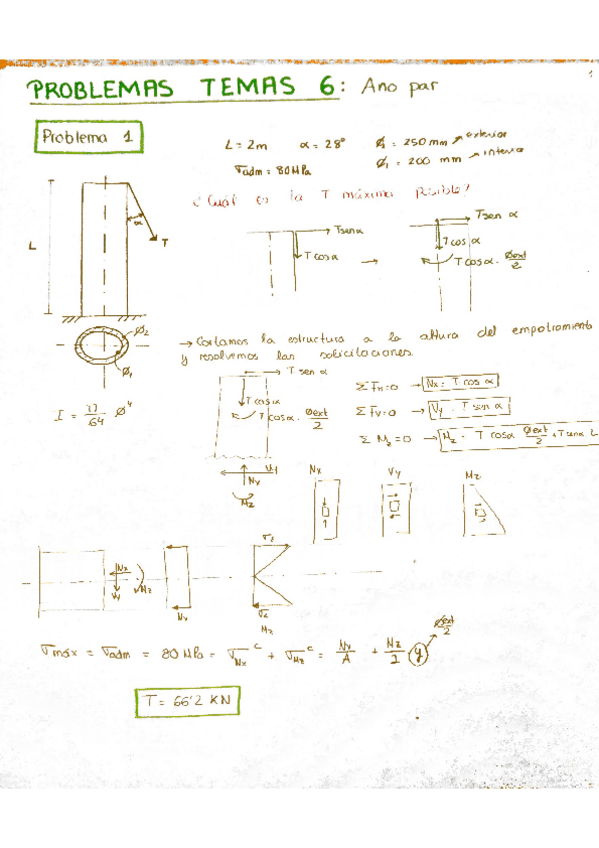 1
PROBLEMAS TEMAS 6: Ano par
Problema 1
L = 2m α = 28° Ø₂ = 250 mm → exterior
Ø₁ = 200 mm → interior
σadm = 80 MPa
¿Cuál es la T máxima posible?
L
α
T
T sen α
T cos α
→
T sen α
T cos α
T cos α · Øext/2
Ø₂
Ø₁
I = π/64 Ø⁴
→ Cortamos la estructura a la altura del empotramiento
y resolvemos las solicitaciones.
T sen α
T cos α
T cos α · Øext/2
Vy
Nx
Mz
ΣFx=0 → Nx = T cos α
ΣFy=0 → Vy = T sen α
ΣMz=0 → Mz = T cos α Øext/2 + T sen α L
Nx Vy Mz
Nx
Vy
Mz
Nx
σz
σz
Mz
σmáx = σadm = 80 MPa = σNxᶜ + σMzᶜ = Nx/A + Mz/I y
Øext/2
T = 66'2 KN